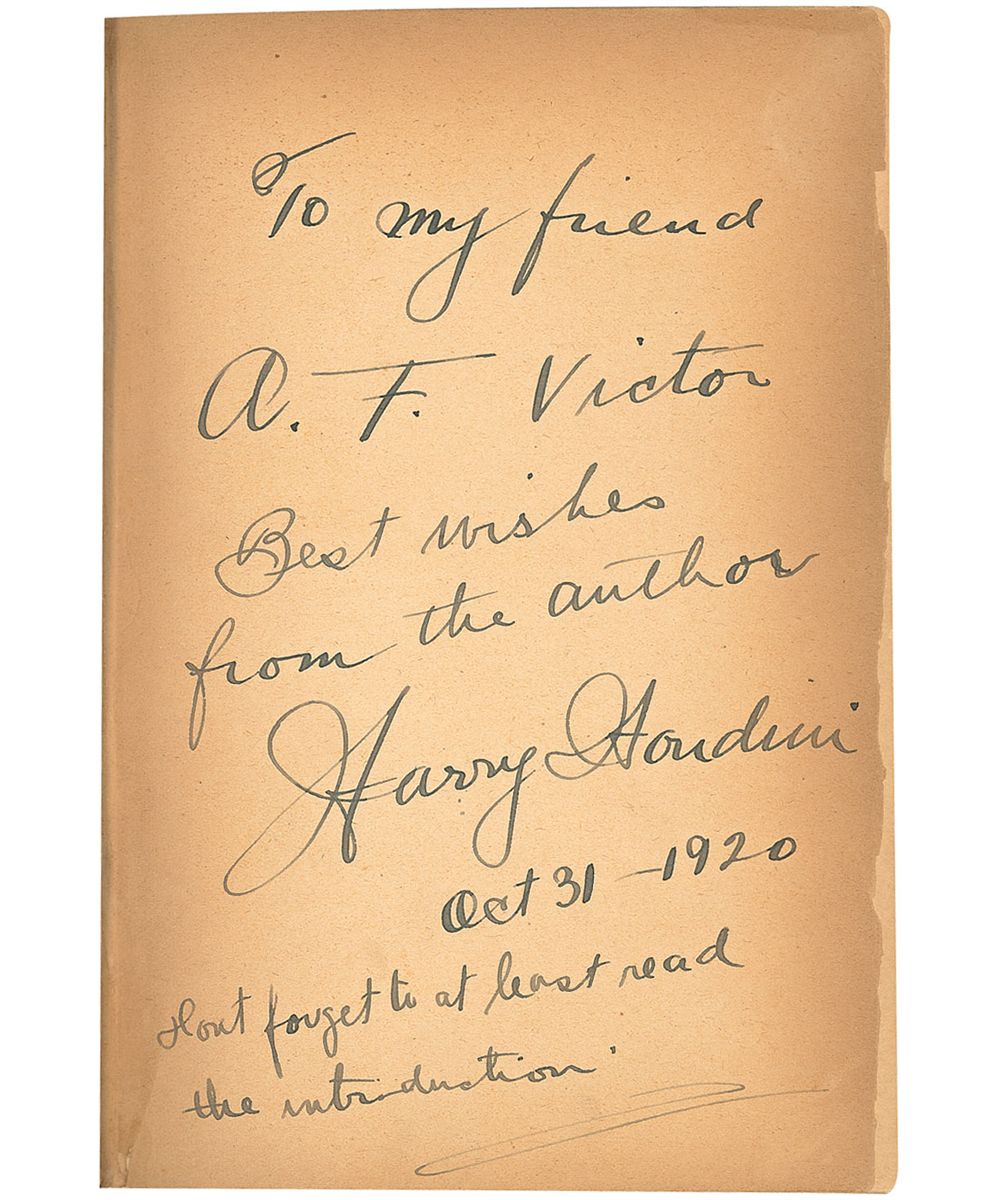 To my friend
A. F. Victor
Best wishes
from the author
Harry Houdini
Oct 31 - 1920
Dont forget to at least read
the introduction.